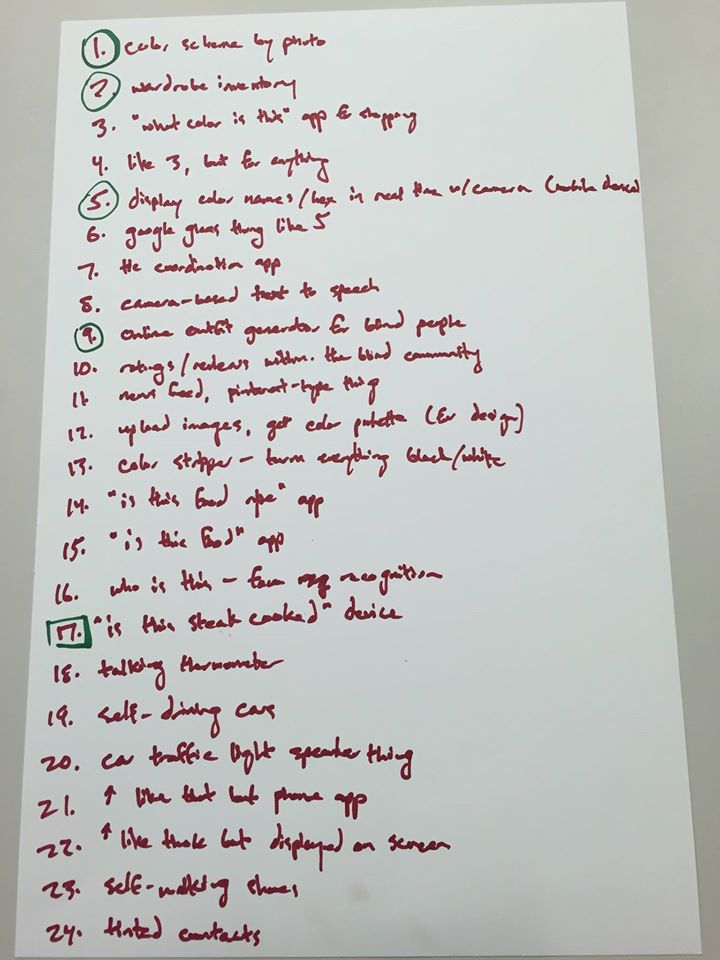 1. color scheme by photo
2. wardrobe inventory
3. "what color is this" app for shopping
4. like 3, but for anything
5. display color names/hex in real time w/camera (mobile device)
6. google glass thing like 5
7. tie coordination app
8. camera-based text to speech
9. online outfit generator for blind people
10. ratings/reviews within the blind community
11. news feed, pinterest-type thing
12. upload images, get color palette (for design)
13. color stripper - turn everything black/white
14. "is this food ripe" app
15. "is this food" app
16. who is this - face recognition
17. "is this steak cooked" device
18. talking thermometer
19. self-driving cars
20. car traffic light speaker thing
21. ↑ like that but phone app
22. ↑ like that but displayed on screen
23. self-walking shoes
24. tinted contacts